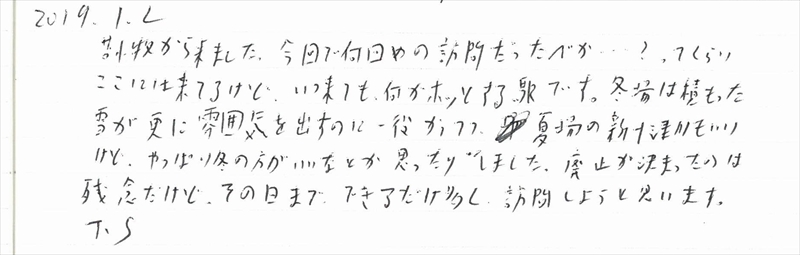 2019.1.2
から来ました。今回で何回めの訪問だったべか…?ってくらい
ここには来てるけど、いつ来ても、何かホッとする駅です。冬場は積もった
雪が更に雰囲気を出すのに一役かってて、夏場の新十津川もいい
けど、やっぱり冬の方がいいなとか思ったりしました。廃止が決まったのは
残念だけど、その日まで、できるだけ多く、訪問しようと思います。
T.S